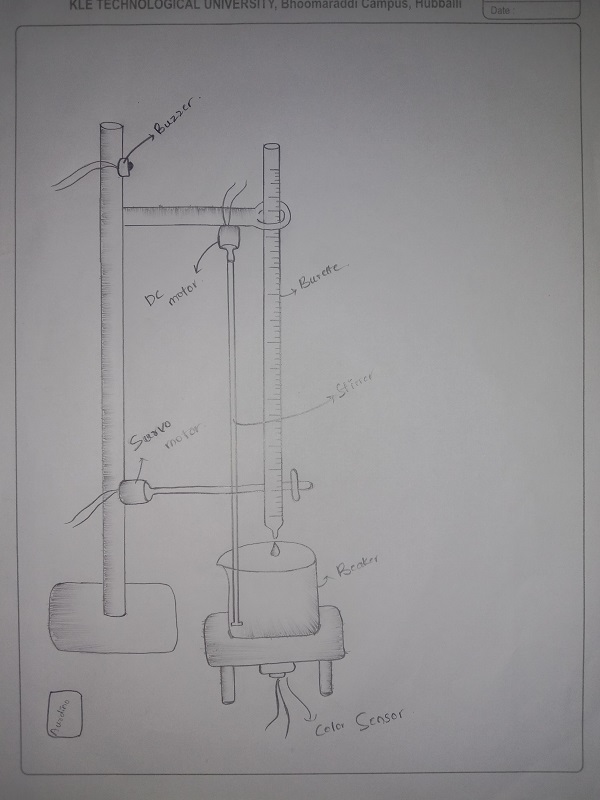 KLE TECHNOLOGICAL UNIVERSITY, Bhoomaraddi Campus, Hubballi
Date :
Buzzer.
DC
motor.
Burette.
Stirrer
Servo
motor.
Beaker
Color Sensor
Aurdino